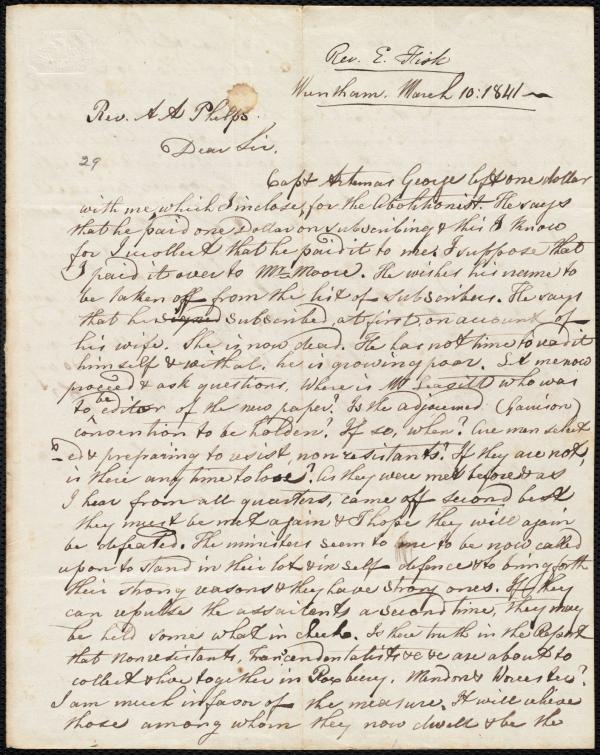 Rev. E. Fisk
Wrentham. March 10: 1841
Rev. A A Phelps.
Dear Sir.
29
Capt Artemas George left one dollar
with me, which I inclose, for the Abolitionist. He says
that he paid one Dollar on subscribing & this I know
for I recollect that he paid it to me; I suppose that
I paid it over to Mr Moore. He wishes his name to
be taken off from the list of subscribers. He says
that he signed subscribed, at first, on account of
his wife. She is now dead. He has not time to read it
himself & withal. he is growing poor. Let me now
proceed & ask questions. Where is Mr Leavitt who was
to be editor of the new paper? Is the adjourned (Garrison)
convention to be holden? If so, when? Are men select
ed & preparing to resist nonresistants? If they are not,
is there any time to lose? As they were met before & as
I hear from all quarters, came off second best
they must be met again & I hope they will again
be defeated. The ministers seem to me to be now called
upon to stand in their lot & in self defence & to bring forth
their strong reasons & they have strong ones. If they
can repulse the assailents a second time, they may
be held some what in check. Is there truth in the Report
that Nonresistants, Trancendentalists &c &c are about to
collect & live together in Roxbury. Mendon & Worcester?
I am much in favor of the measure. It will relieve
those among whom they now dwell & be the